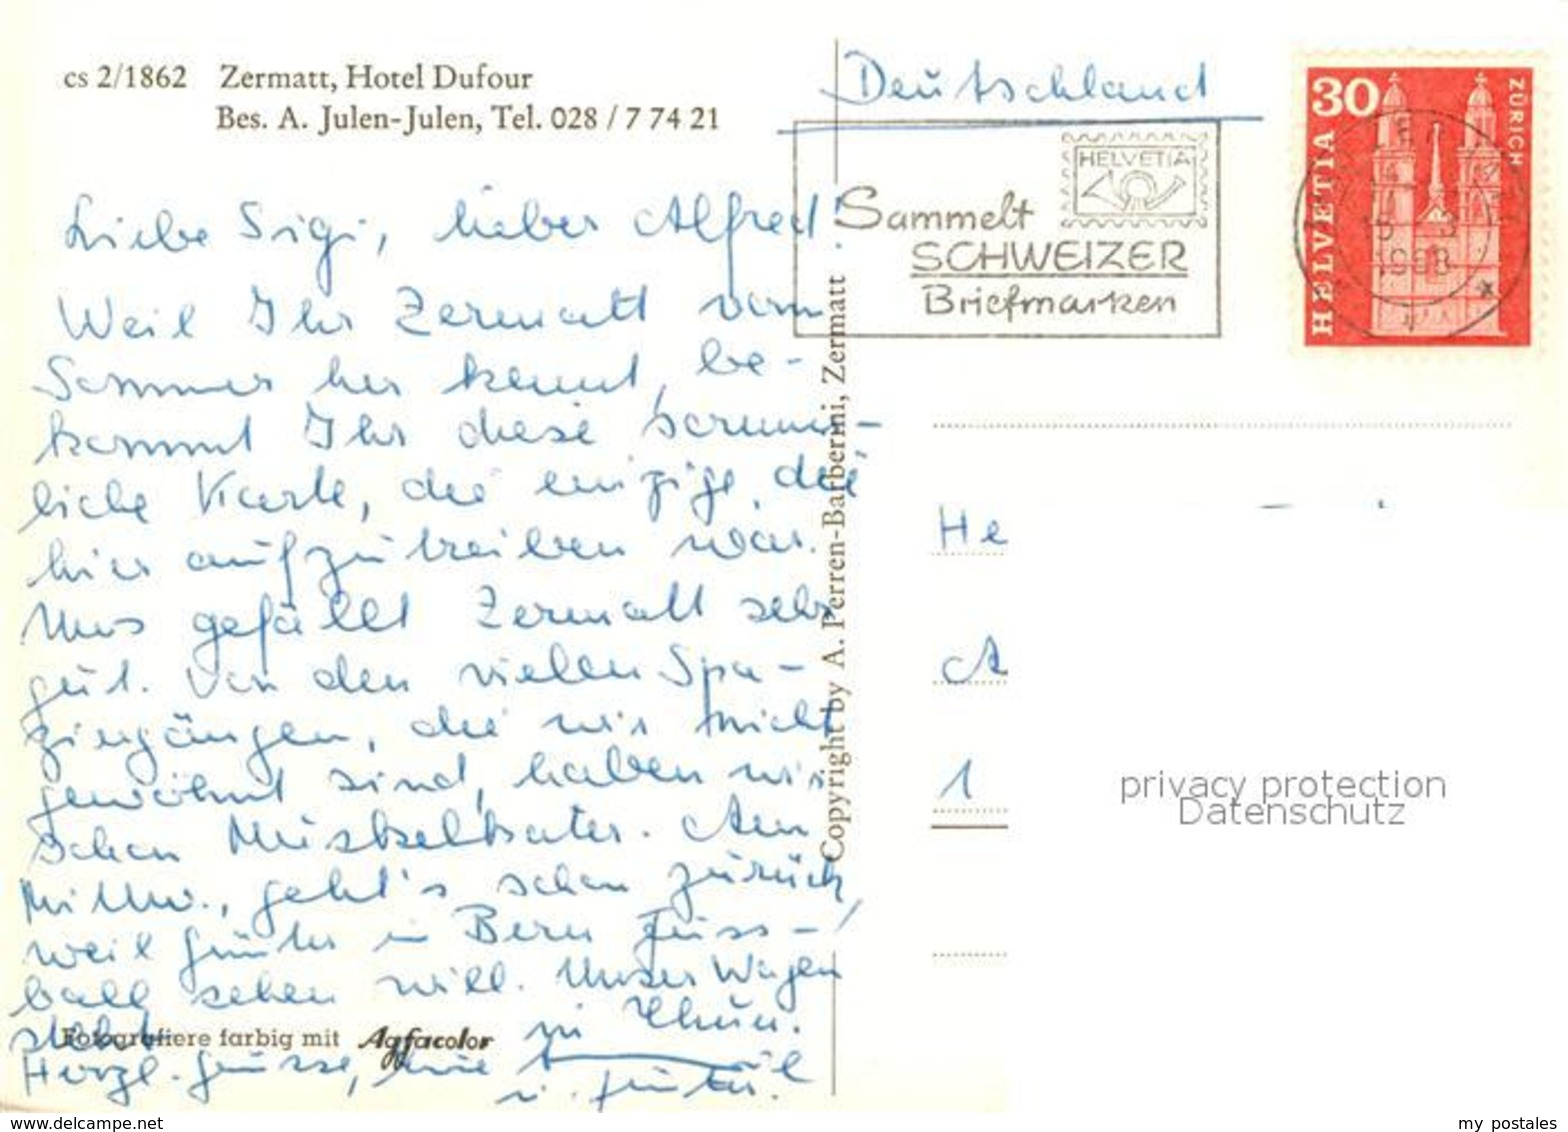 cs 2/1862 Zermatt, Hotel Dufour
Bes. A. Julen-Julen, Tel. 028 / 7 74 21
Deutschland
30
HELVETIA
ZÜRICH
HELVETIA
Sammelt
SCHWEIZER
Briefmarken
Liebe Sigi, lieber Alfred!
Weil Ihr Zermatt vom
Sommer her kennt, be-
kommt Ihr diese sommer-
liche Karte, die einzige, die
hier aufzutreiben war.
Uns gefällt Zermatt sehr
gut. Von den vielen Spa-
ziergängen, die wir nicht
gewöhnt sind, haben wir
schon Muskelkater. Am
Mittw., geht's schon zurück,
weil Günter in Bern Fuss-
ball sehen will. Unser Wagen
steht in Thun.
Herzl. Grüsse,
u. Günter.
Fotografiere farbig mit Agfacolor
Copyright by A. Perren-Barberini, Zermatt
He
A
1
privacy protection
Datenschutz
www.delcampe.net
my postales